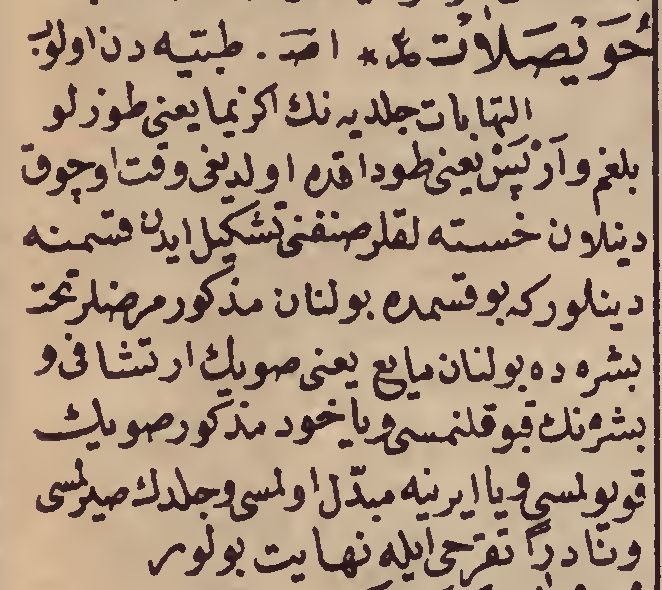 حُوَيْصَلَات * اصد . طبيه دن اولوب
التهابات جلديه نك اكزيما يعنى طوزلو
بلغم و آرپس يعنى طوداقده اولديغى وقت اوچوق
دينلان خسته لقلر صنفنى تشكيل ايدن قسمنه
دينلور كه بو قسمده بولنان مذكور مرضلر تحت
بشره ده بولنان مايع يعنى صويك ارتشافى و
بشره نك قبوقلنمسى و ياخود مذكور صويك
قويولمسى و يا ايرينه مبدّل اولمسى و جلدك صيرلمسى
و نادراً تقرحى ايله نهايت بولور